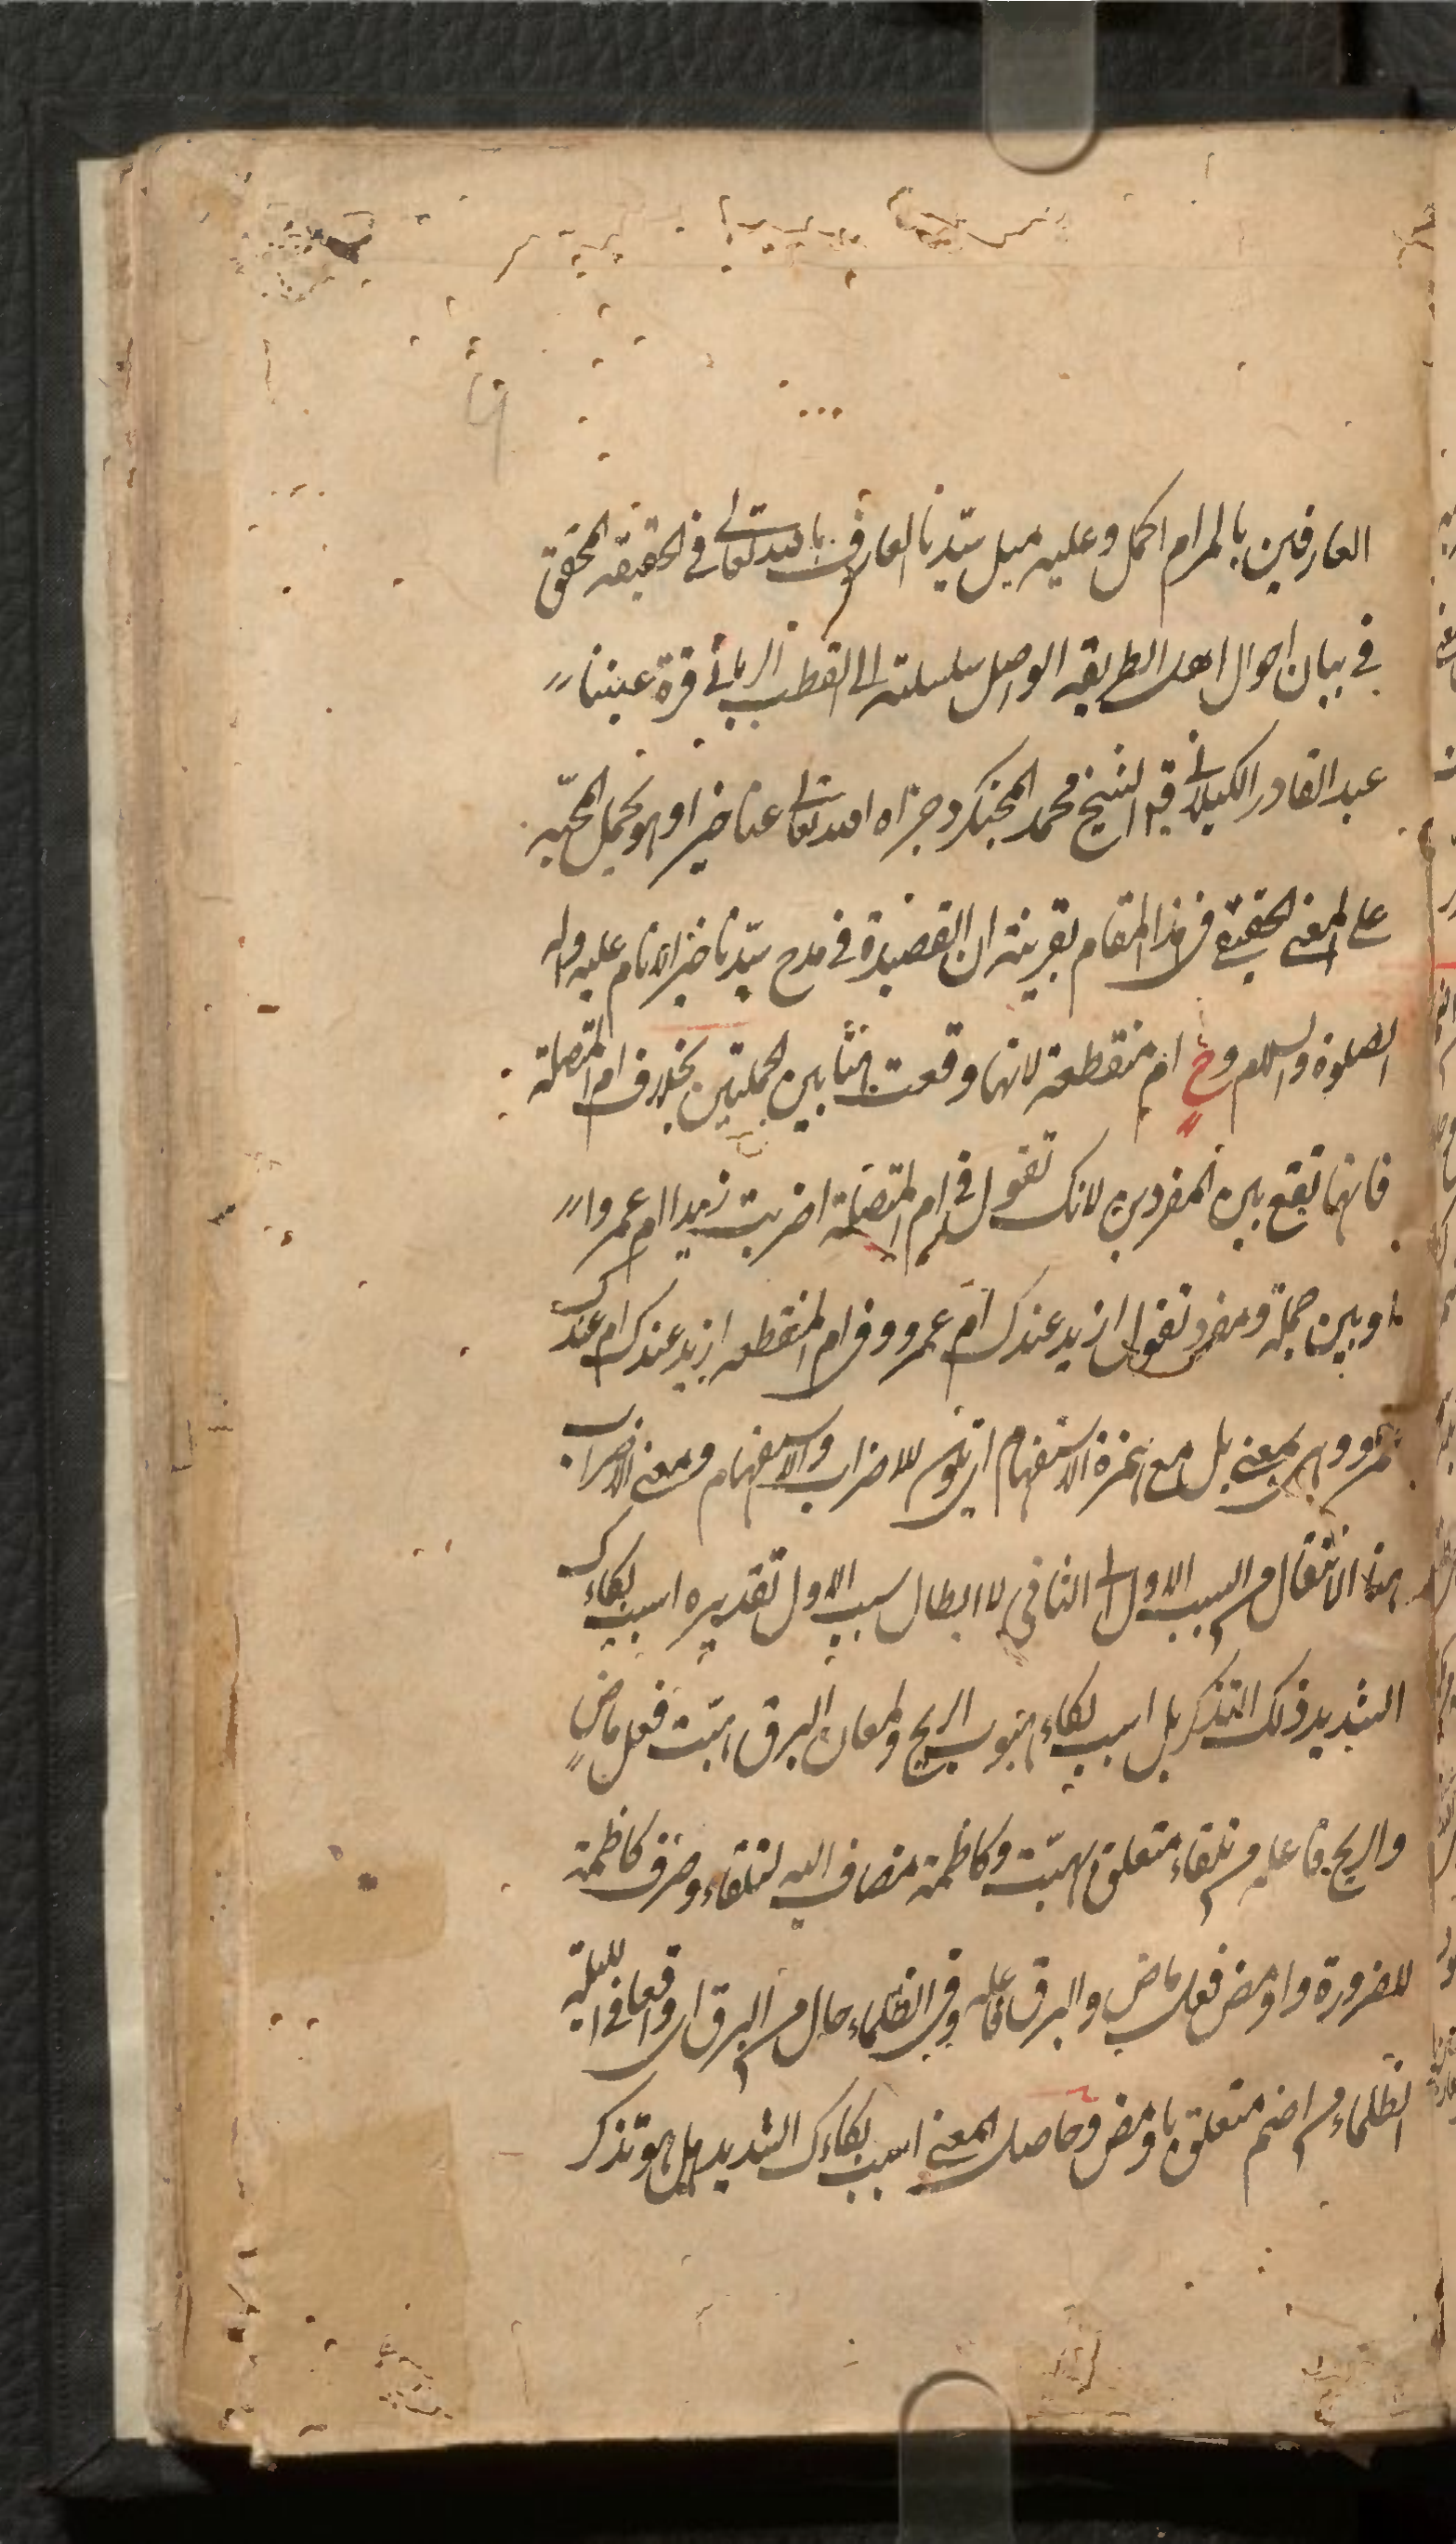 العارفين بالمرام اكمل وعليه ميل سيّدنا العارف بالله تعالى في الحقيقه المحقق
في بيان احوال اهل الطريقه الواصل سلسلته الى القطب الرباني قرة عيننا
عبد القادر الكيلاني الشيخ محمد وجزاه الله تعالى عنا خيرا وهو يحمل المحبّه
على المعنى الحقيقي في هذا المقام بقرينة ان القصيدة في مدح سيّدنا خير الانام عليه واله
الصلوة والسلام وح ام منقطعة لانها وقعت هنا بين الجملتين بخلاف ام المتصلة
فانها تقع بين المفردين لانك تقول في ام المتصلة اضربت زيدا ام عمروا
او بين جملة ومفرد تقول ازيد عندك ام عمرو وفي ام المنقطعه ازيد عندك ام عندك
عمرو وهي بمعنى بل مع همزة الاستفهام اى تكون للاضراب والاستفهام ومعنى الاضراب
هنا الانتقال من السبب الاول الى الثاني لا ابطال سبب الاول تقديره اسبب بكاءك
الشديد ذلك التذكر بل اسبب بكاء هبوب الريح ولمعان البرق هبّت فعل ماضٍ
والريح فاعله من تلقاء متعلق بهبّت وكاظمة مضاف اليه لتلقاء وصرف كاظمة
للضرورة واومض فعل ماض والبرق فاعله وفي الظلماء حال من البرق اى واقعا في الليلة
الظلماء من اضم متعلق باومض وحاصل المعنى اسبب بكاءك الشديد هل هو تذكر